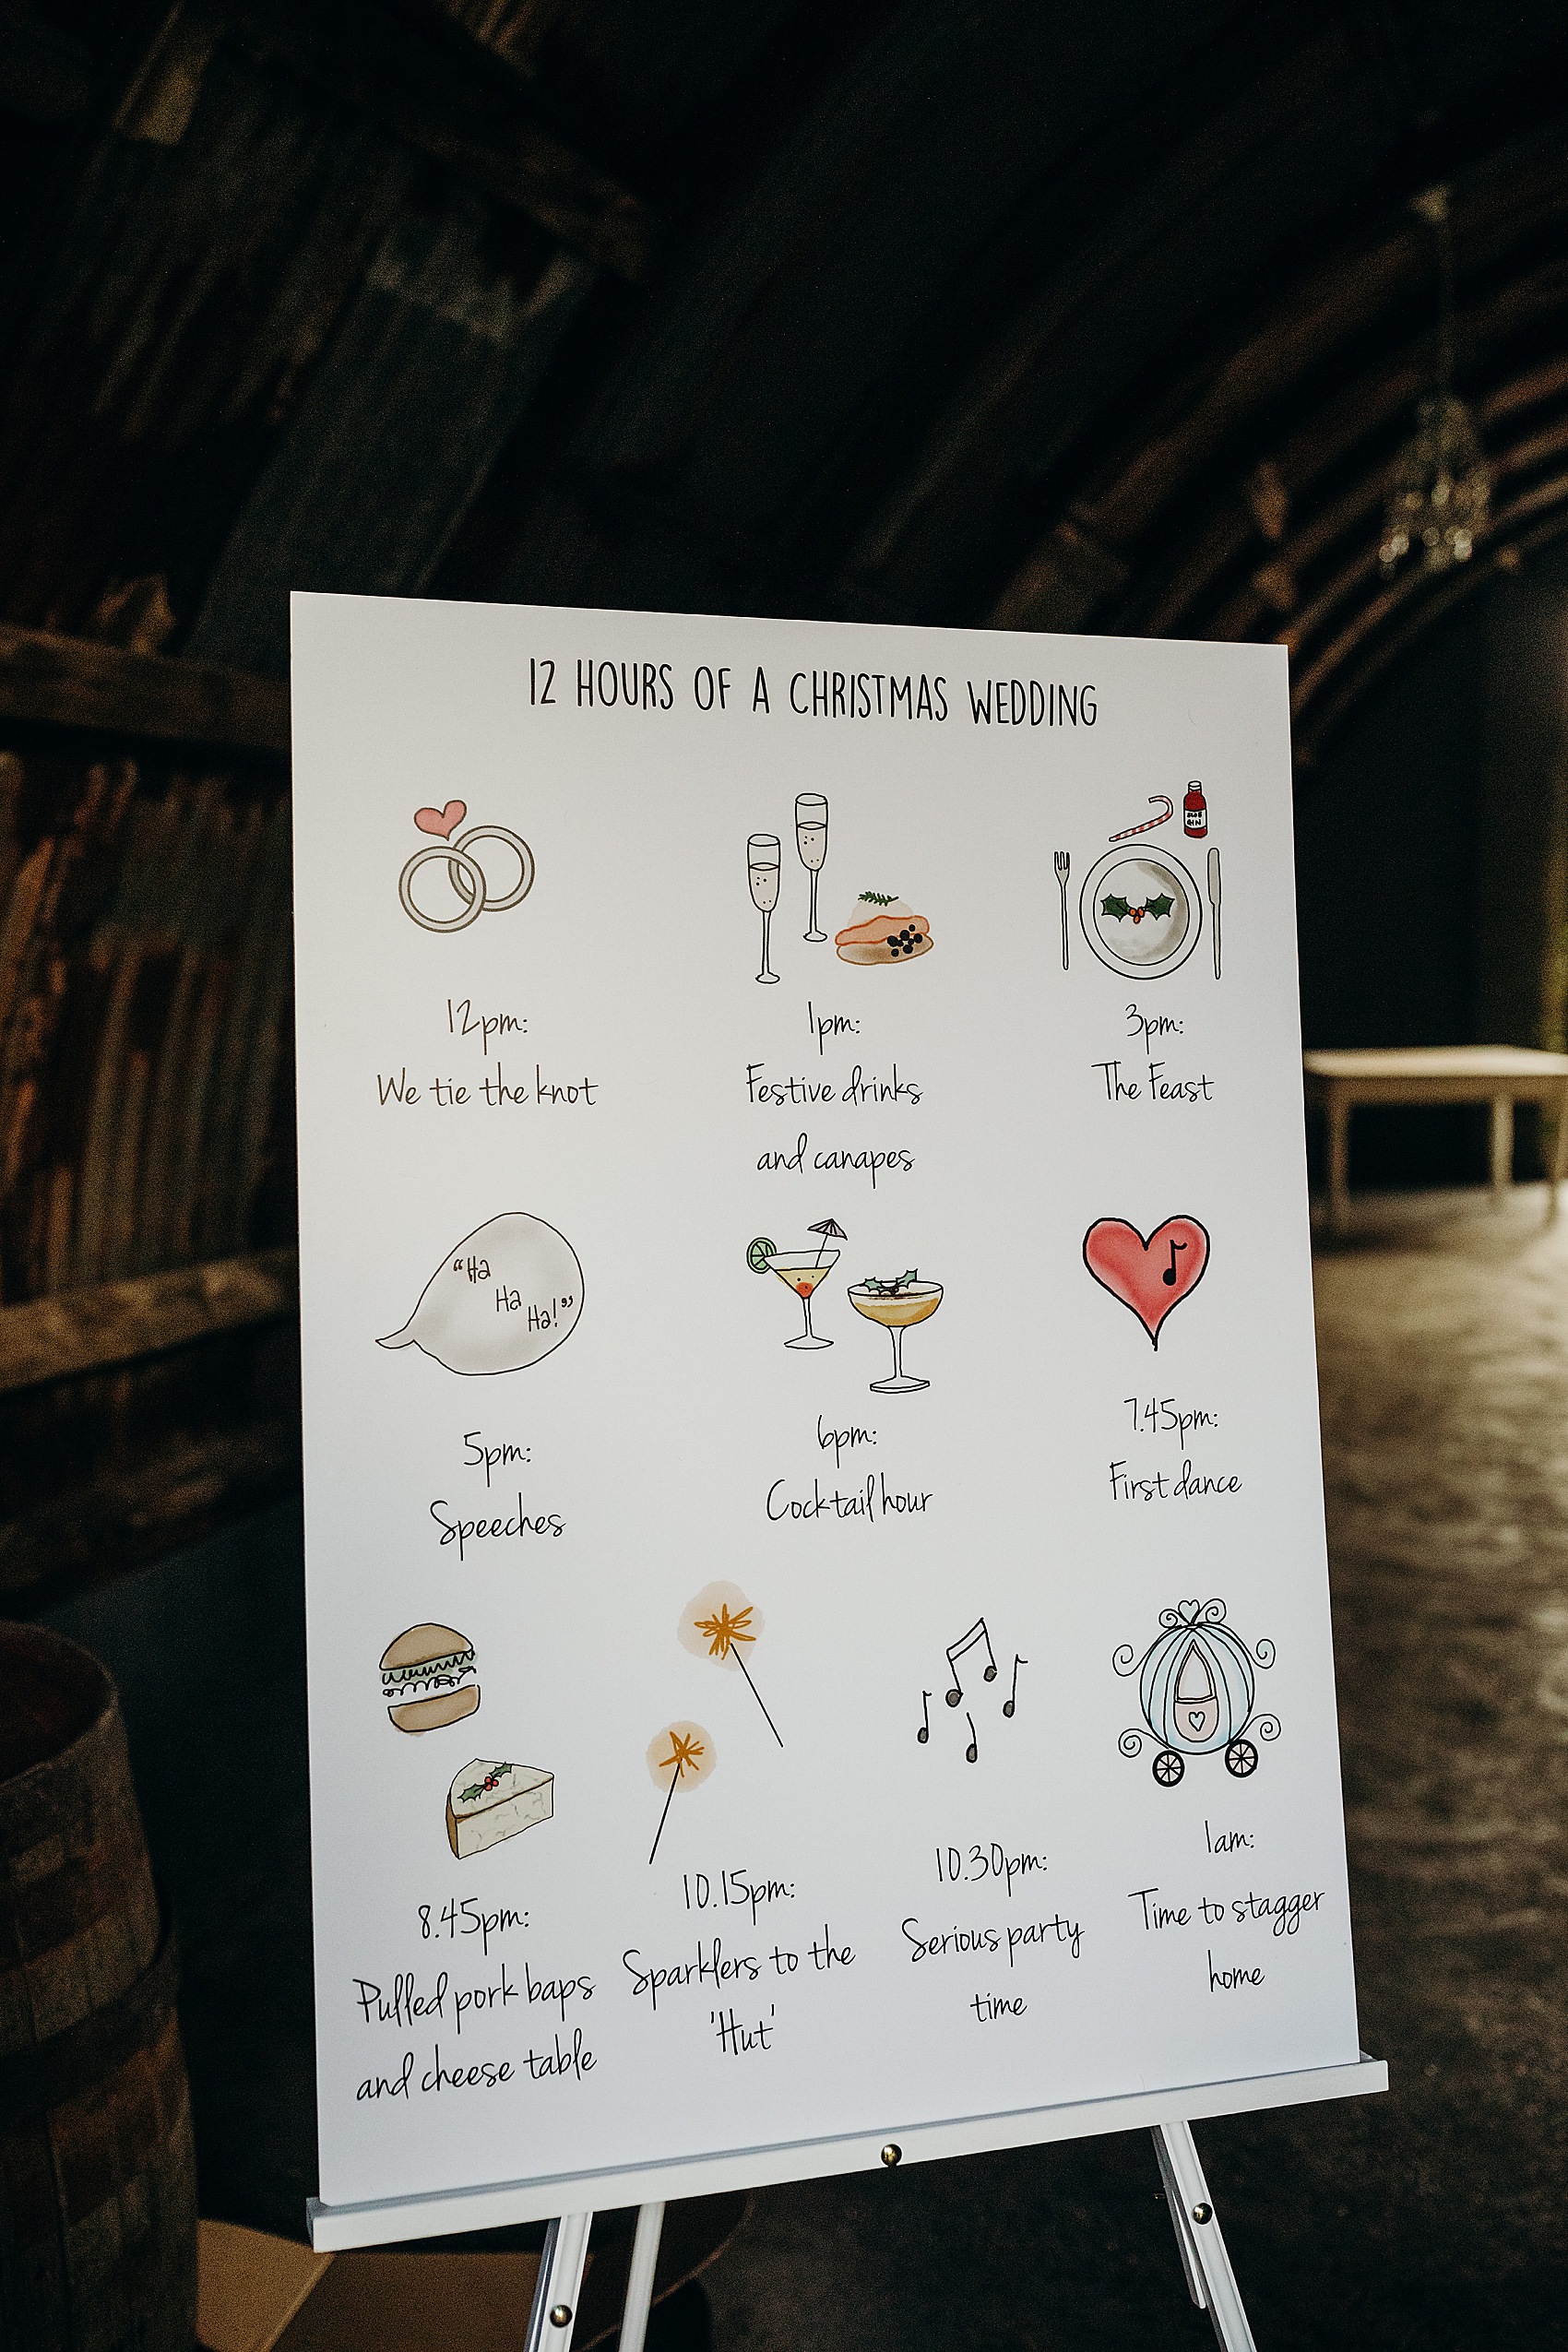 12 HOURS OF A CHRISTMAS WEDDING
SLOE
GIN
12pm:
We tie the knot
1pm:
Festive drinks
and canapes
3pm:
The Feast
"Ha
Ha
Ha!"
5pm:
Speeches
6pm:
Cocktail hour
7.45pm:
First dance
8.45pm:
Pulled pork baps
and cheese table
10.15pm:
Sparklers to the
'Hut'
10.30pm:
Serious party
time
1am:
Time to stagger
home